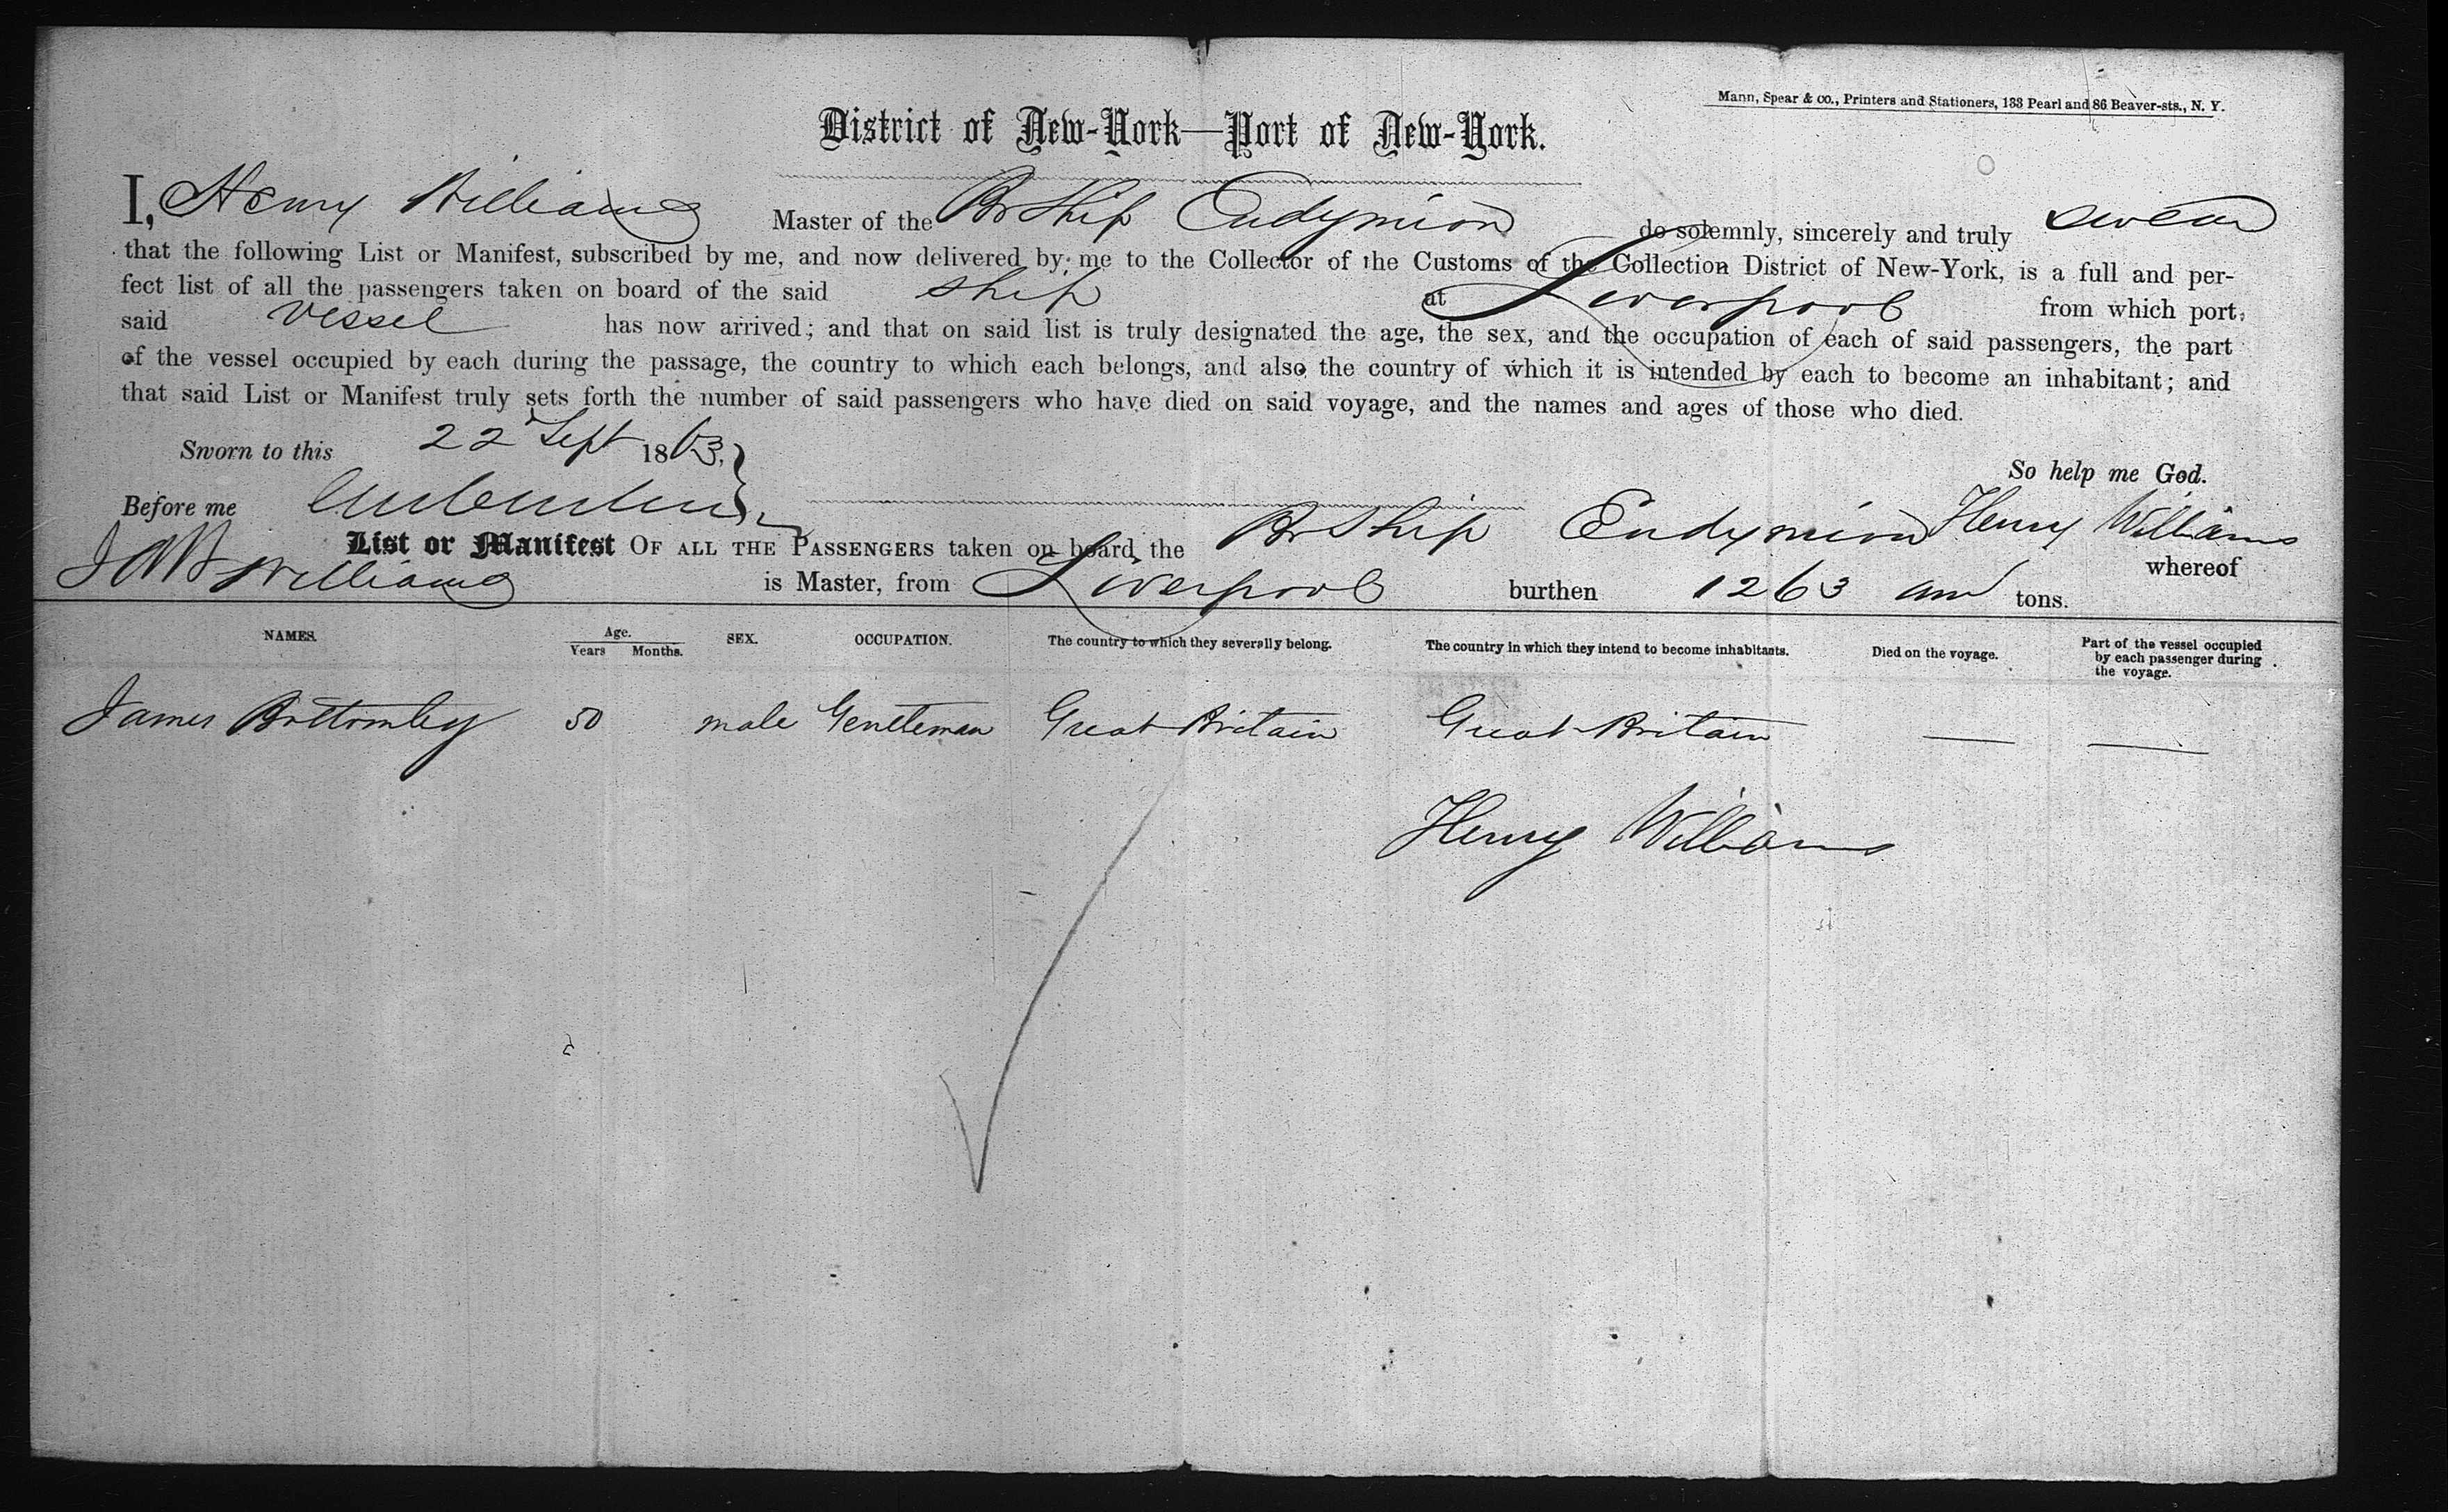 Mann, Spear & co., Printers and Stationers, 133 Pearl and 86 Beaver-sts., N. Y.
District of New-York—Port of New-York.
I, Henry Williams Master of the Br Ship Endymion do solemnly, sincerely and truly swear
that the following List or Manifest, subscribed by me, and now delivered by me to the Collector of the Customs of the Collection District of New-York, is a full and per-
fect list of all the passengers taken on board of the said ship at Liverpool from which port,
said vessel has now arrived; and that on said list is truly designated the age, the sex, and the occupation of each of said passengers, the part
of the vessel occupied by each during the passage, the country to which each belongs, and also the country of which it is intended by each to become an inhabitant; and
that said List or Manifest truly sets forth the number of said passengers who have died on said voyage, and the names and ages of those who died.
Sworn to this 22 Sept 1863, So help me God.
Before me
List or Manifest OF ALL THE PASSENGERS taken on board the Br Ship Endymion Henry Williams whereof
Williams is Master, from Liverpool burthen 1263 tons.
NAMES. Age. Years Months. SEX. OCCUPATION. The country to which they severally belong. The country in which they intend to become inhabitants. Died on the voyage. Part of the vessel occupied by each passenger during the voyage.
James Bottomley 50 male Gentleman Great Britain Great Britain — —
Henry Williams